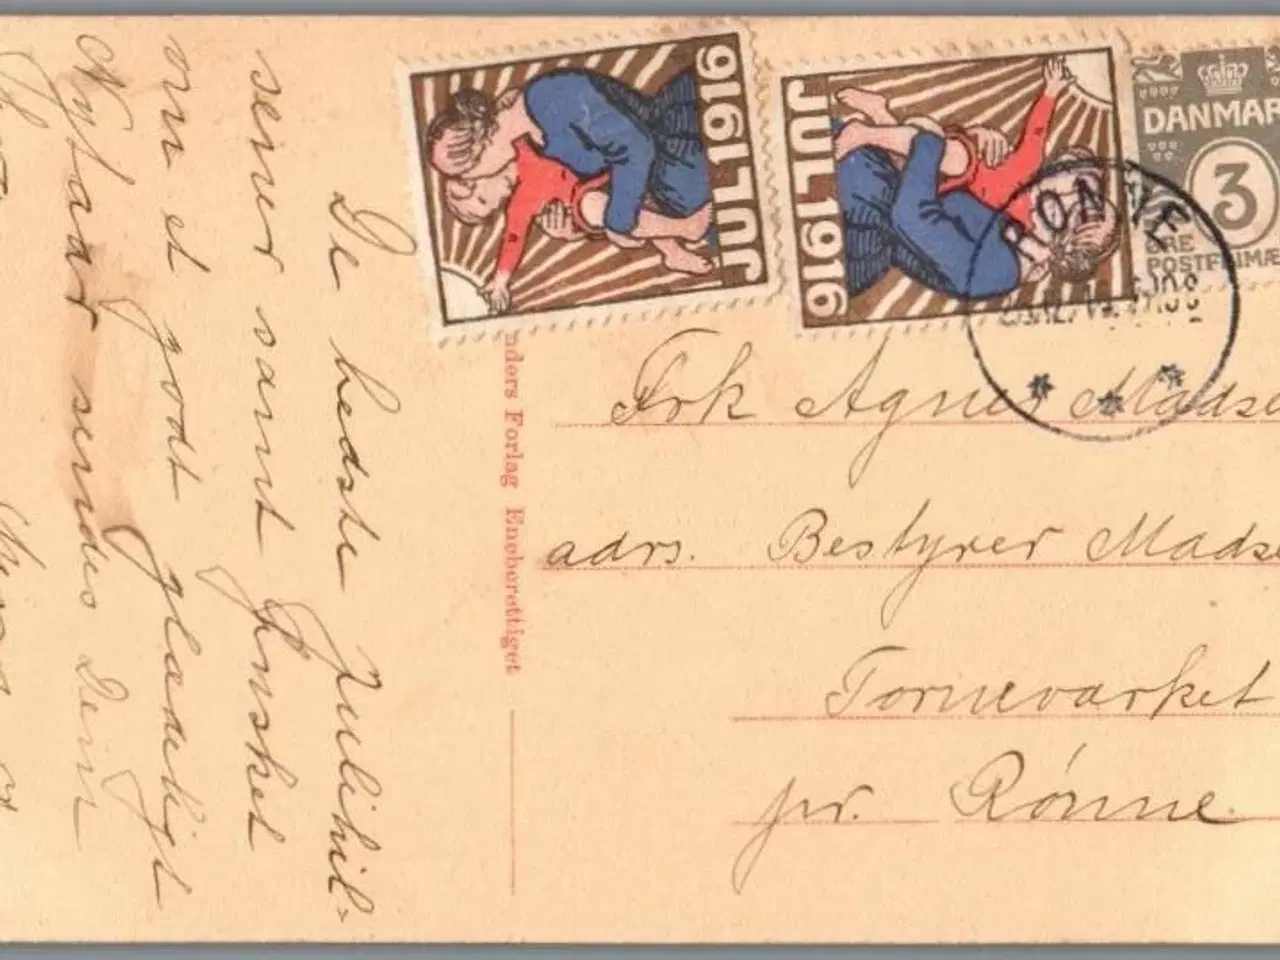 De hedste Julihil=
sener samt Ønsket
om et godt glædeligt
Nytaar sendes Dem
JUL 1916
JUL 1916
DANMAR
3
ØRE
POSTFRIMÆ
RØNNE
nders Forlag Eneberettiget
Frk Agnes Madse
adrs. Bestyrer Madse
Torneværket
pr. Rønne.